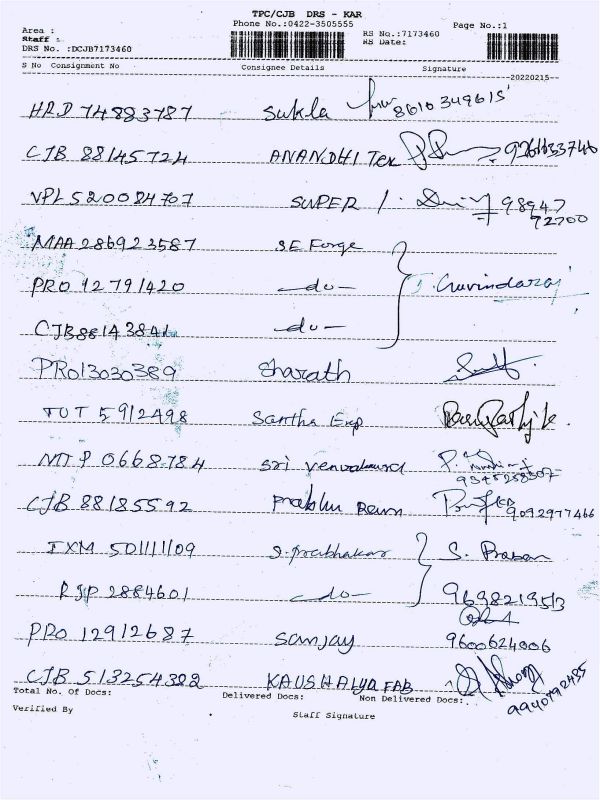 TPC/CJB DRS - KAR
Area : Phone No.:0422-3505555 Page No.:1
Staff : RS No.:7173460
DRS No. :DCJB7173460 RS Date:
S No Consignment No Consignee Details Signature
20220215
HRD 74883787 Sukla 8610349615
CJB 88145724 ANANDHI TEX
VPL 520084707 SUPER 1. 98947
72700
MAA 286923587 S.E Forge
PRO 12791420 -do- J. Gravindaraj
CJB88143841 -do-
PRO13030389 Sharath
TUT 5912498 Santha Exp
MTP 0668784 Sri 
CJB 88185592 Prabhu 9092977466
IXM 501111109 S. Prabhakar
RJP 2884601 -do-
PRO 12912687 Sanjay 9600624006
CJB 513254322 KAUSHALYA FAB 9940792485
Total No. Of Docs: Delivered Docs: Non Delivered Docs:
Verified By Staff Signature